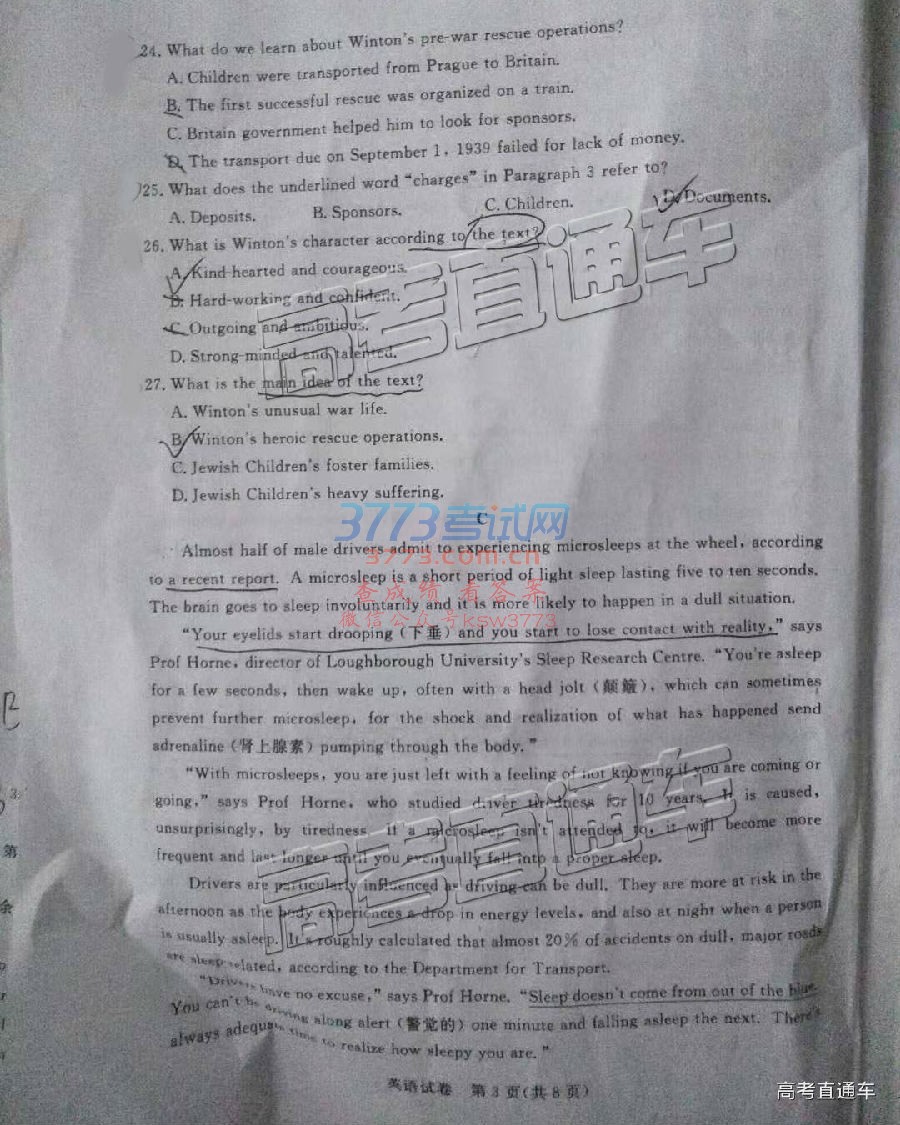 24. What do we learn about Winton's pre-war rescue operations?
A. Children were transported from Prague to Britain.
B. The first successful rescue was organized on a train.
C. Britain government helped him to look for sponsors.
D. The transport due on September 1, 1939 failed for lack of money.
25. What does the underlined word "charges" in Paragraph 3 refer to?
A. Deposits. B. Sponsors. C. Children. D. Documents.
26. What is Winton's character according to the text?
A. Kind-hearted and courageous.
B. Hard-working and confident.
C. Outgoing and ambitious.
D. Strong-minded and talented.
27. What is the main idea of the text?
A. Winton's unusual war life.
B. Winton's heroic rescue operations.
C. Jewish Children's foster families.
D. Jewish Children's heavy suffering.
C
Almost half of male drivers admit to experiencing microsleeps at the wheel, according
to a recent report. A microsleep is a short period of light sleep lasting five to ten seconds.
The brain goes to sleep involuntarily and it is more likely to happen in a dull situation.
"Your eyelids start drooping (下垂) and you start to lose contact with reality," says
Prof Horne, director of Loughborough University's Sleep Research Centre. "You're asleep
for a few seconds, then wake up, often with a head jolt (颠簸), which can sometimes
prevent further microsleep, for the shock and realization of what has happened send
adrenaline (肾上腺素) pumping through the body."
"With microsleeps, you are just left with a feeling of not knowing if you are coming or
going," says Prof Horne, who studied driver tiredness for 10 years. It is caused,
unsurprisingly, by tiredness. If a microsleep isn't attended to, it will become more
frequent and last longer until you eventually fall into a proper sleep.
Drivers are particularly influenced as driving can be dull. They are more at risk in the
afternoon as the body experiences a drop in energy levels, and also at night when a person
is usually asleep. It's roughly calculated that almost 20% of accidents on dull, major roads
are sleep-related, according to the Department for Transport.
"Drivers have no excuse," says Prof Horne. "Sleep doesn't come from out of the blue.
You can't be driving along alert (警觉的) one minute and falling asleep the next. There's
always adequate time to realize how sleepy you are."
英语试卷 第3页(共8页)
高考直通车
高考直通车
3773考试网
3773.com.cn
查成绩 看答案
微信公众号ksw3773
高考直通车
第